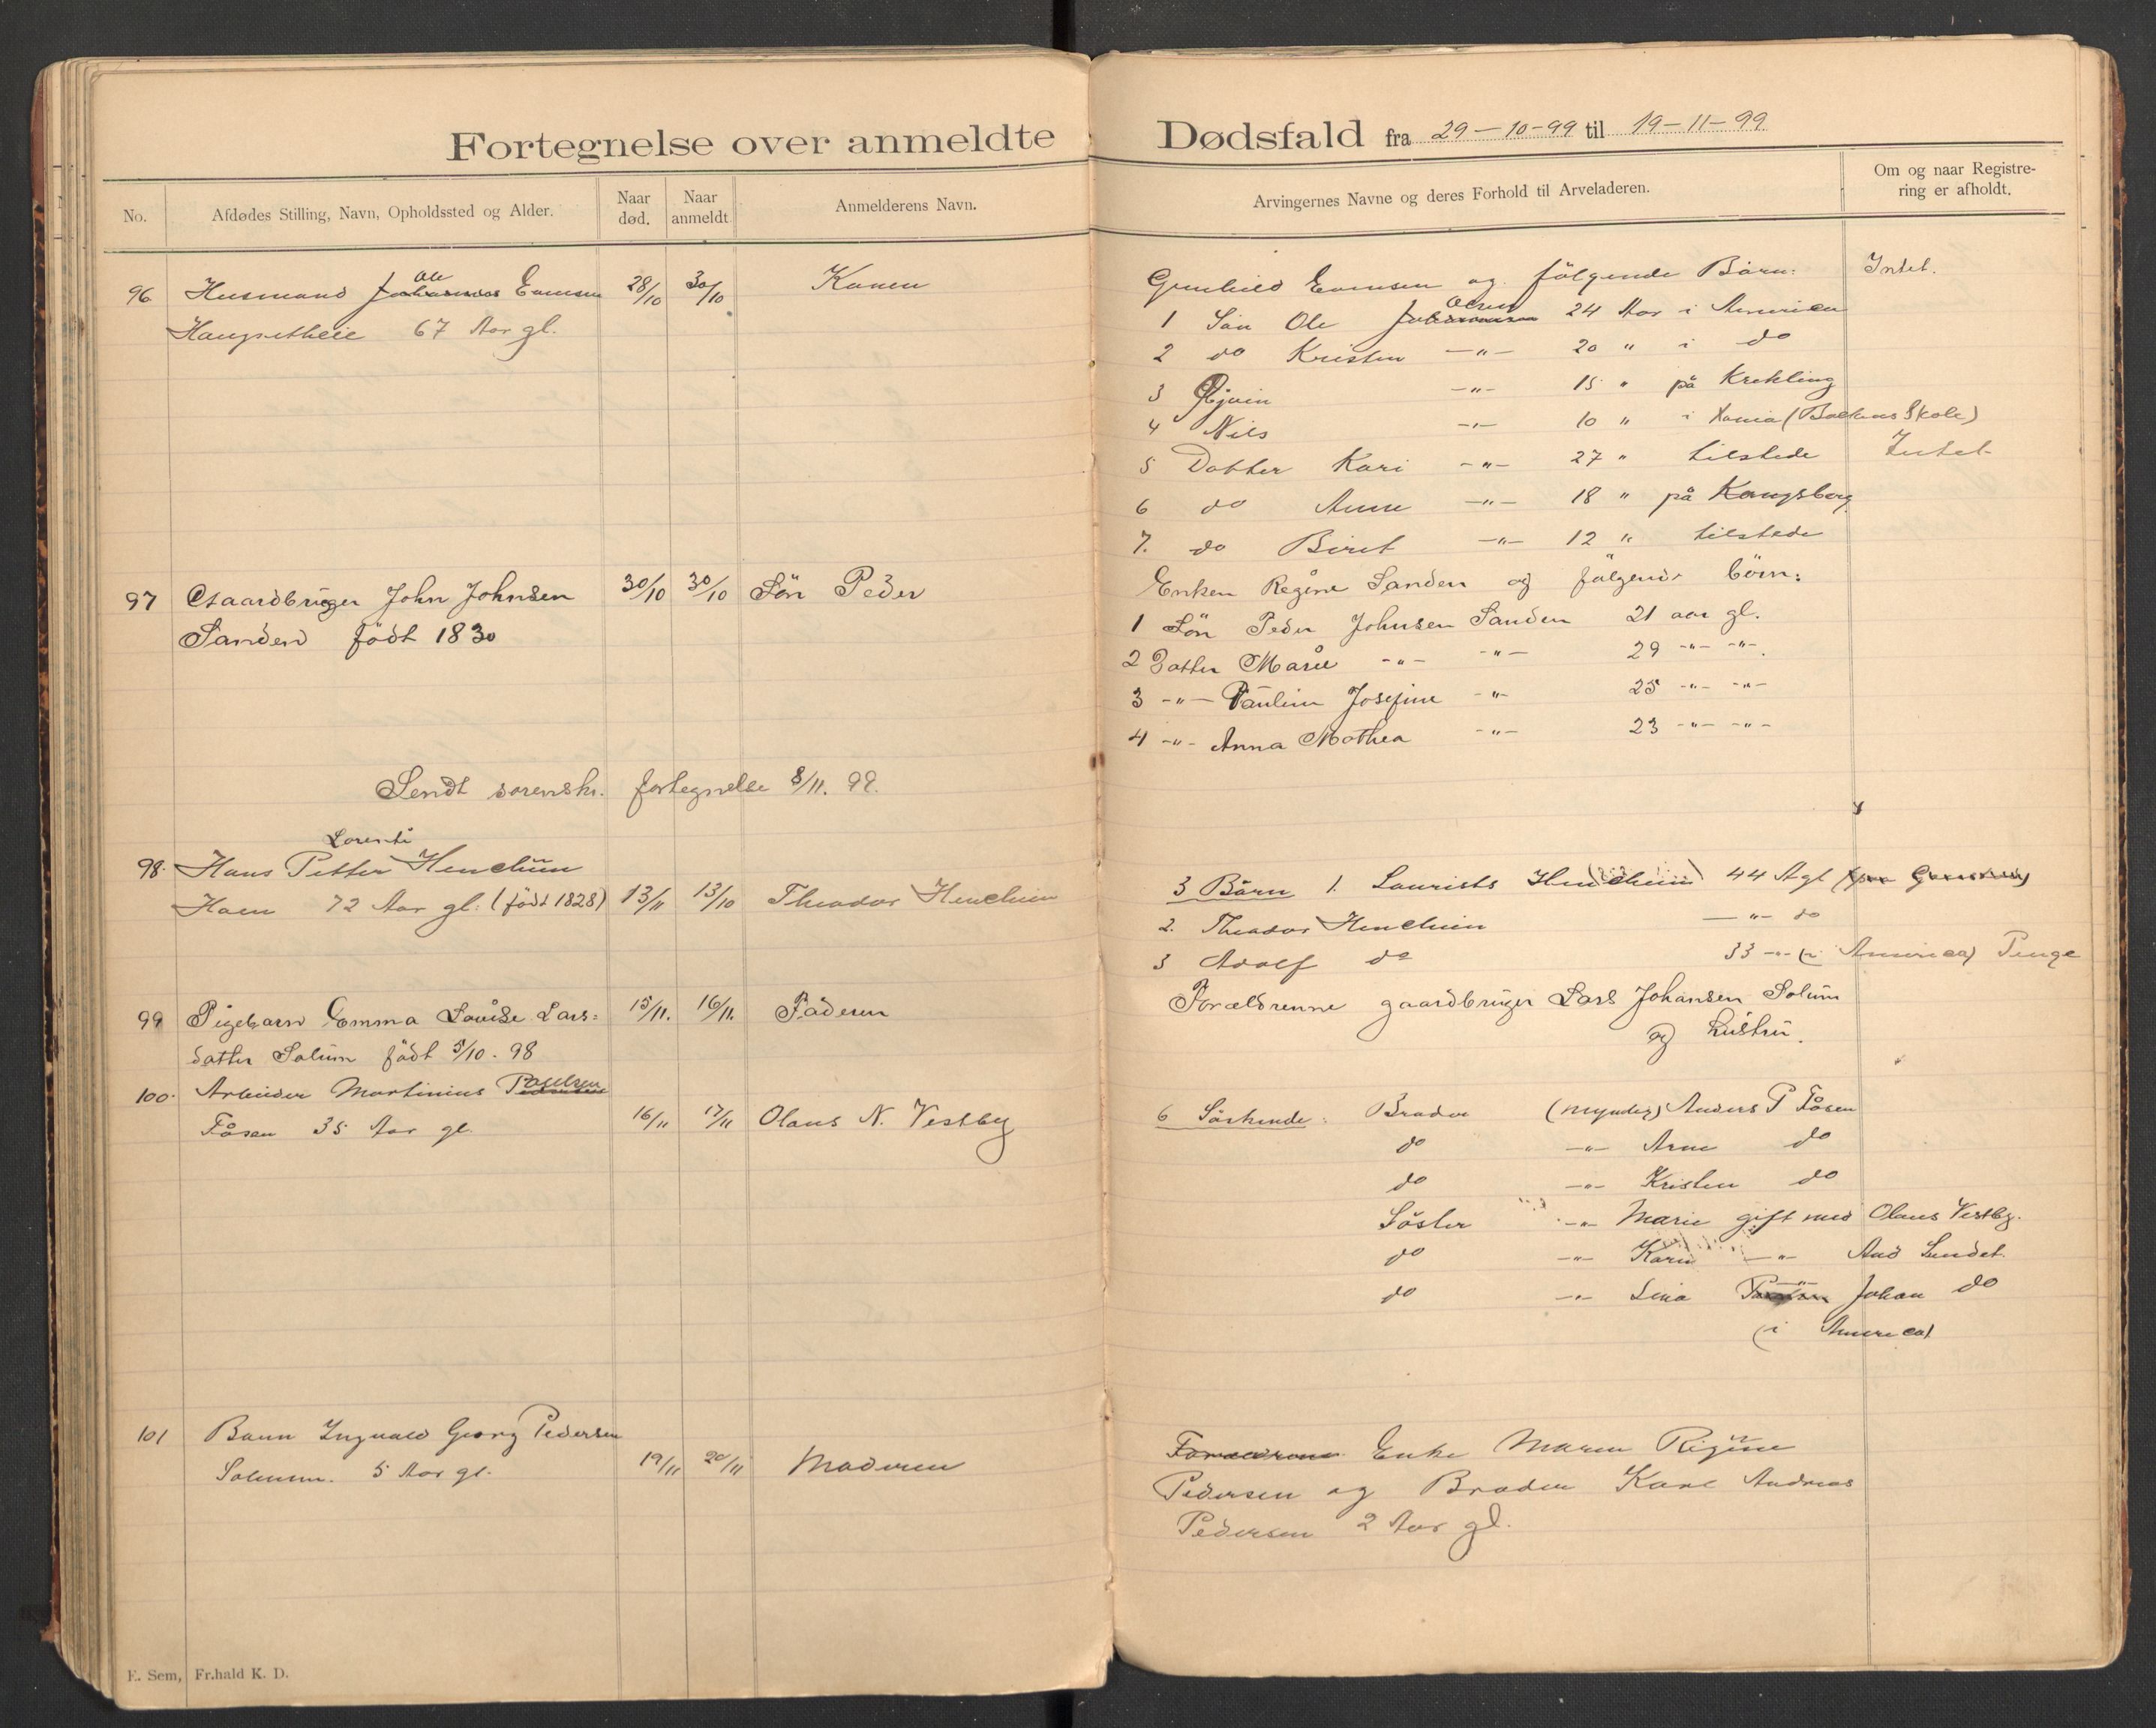 Fortegnelse over anmeldte Dødsfald fra 29-10-99 til 19-11-99
No.
Afdødes Stilling, Navn, Opholdssted og Alder.
Naar død.
Naar anmeldt
Anmelderens Navn.
Arvingernes Navne og deres Forhold til Arveladeren.
Om og naar Registrering er afholdt.
96 Husmand Ole Evensen 28/10 30/10 Konen
67 Aar gl.
Gunhild Evensen og følgende Børn:
Intet.
1 Søn Ole Olsen 24 Aar i America
2 do Kristen -"- 20 " i do
3 Ejvin -"- 15 " på Krekling
4 Nils -"- 10 " i Xania (Bakkens Skole)
5 Datter Kari -"- 27 " tilstede Intet
6 do Anne -"- 18 " på Kongsberg
7. do Biret -"- 12 " tilstede
97 Gaardbruger John Johnsen 30/10 30/10 Sön Peder
Sanden född 1830
Enken Regine Sanden og følgende börn:
1 Sön Peder Johnsen Sanden 21 aar gl.
2 Datter Marie -"- -"- 29 -"- -"-.
3 -"- Pauline Josefine -"- 25 -"- -"-
4 -"- Anna Mathea -"- 23 -"- -"-
Sendt sorenskr. fortegnelse 8/11. 99.
Lorents
98. Hans Petter Henchien
72 Aar gl. (född 1828) 13/11 13/10 Theodor Henchien
3 Børn 1. Laurists Henchien 44 Agl
2. Theodor Henchien -"- do
3 Adolf do 33 -"- (i America) Penge
99 Pigebarn Emma Louise Lars= 15/11. 16/11. Faderen
datter Solum född 5/10 - 98
Forældrenne gaardbruger Lars Johansen Solum
og hustru.
100. Arbeider Martinius Paulsen
Fåsen 35 Aar gl. 16/11 17/11 Olaus N. Vestby
6 Søskende: Broder (myndig) Anders P Fåsen
do -"- Arne do
do -"- Kristen do
Søster -"- Marie gift med Olaus Vestby.
do -"- Karin -"- And Lundet.
do -"- Lina -"- Johan do
(i America)
101 Barn Ingvald Georg Pedersen
Solumm. 5 Aar gl. 19/11 20/11 Moderen
Enke Maren Regine
Pedersen og Broder Karl Andreas
Pedersen 2 Aar gl.
E. Sem, Fr.hald K. D.